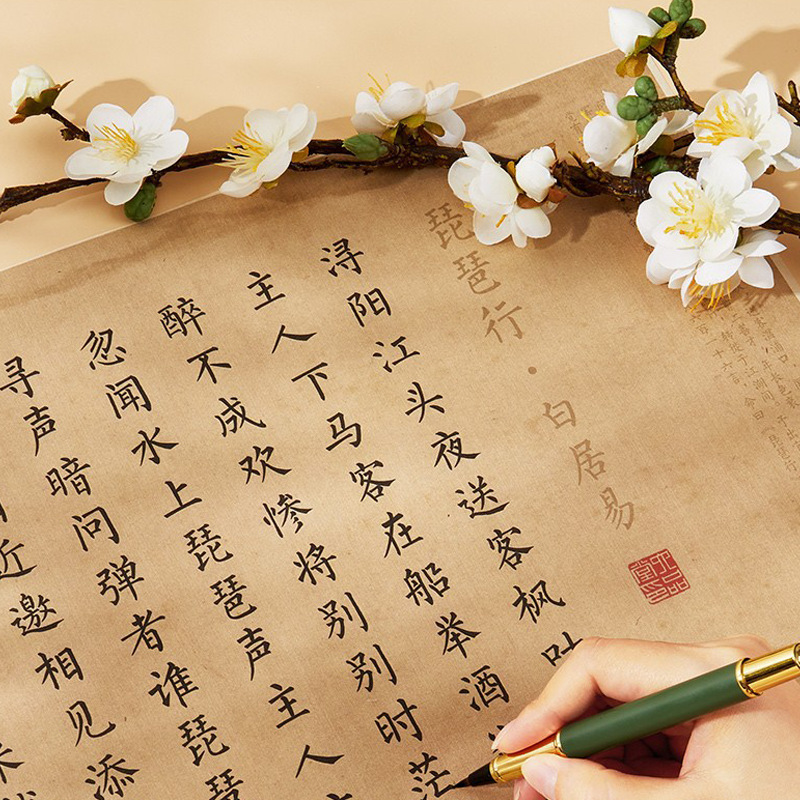 琵琶行·白居易
浔阳江头夜送客枫叶
主人下马客在船举酒
醉不成欢惨将别别时茫
忽闻水上琵琶声主人
寻声暗问弹者谁琵琶
近邀相见添